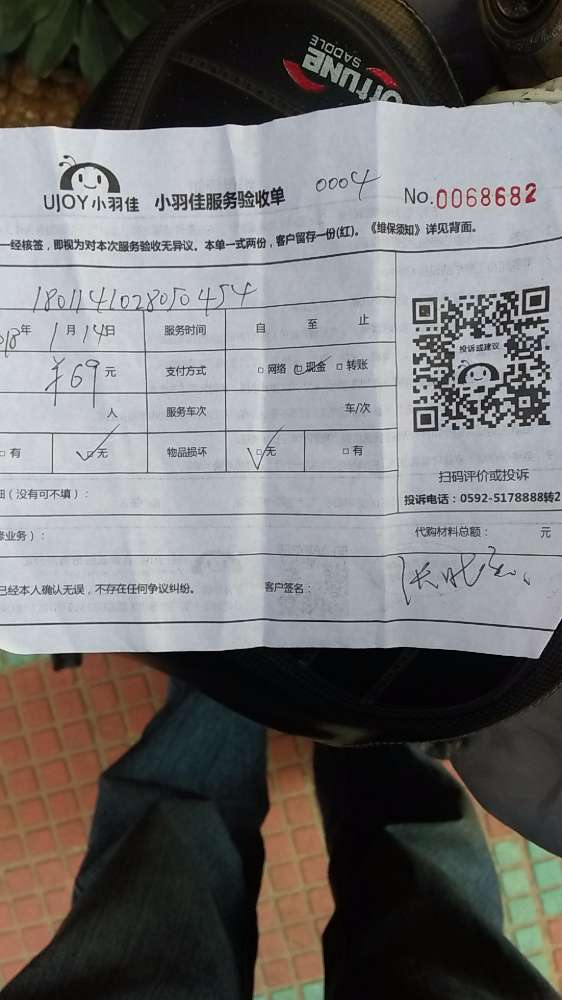 fortune
SADDLE
UJOY小羽佳 小羽佳服务验收单 0004 No.0068682
一经核签，即视为对本次服务验收无异议。本单一式两份，客户留存一份(红)。《维保须知》详见背面。
1801141028050454
年 1月14日 服务时间 自 至 止
¥69元 支付方式 □网络 □现金 □转账
投诉或建议
人 服务车次 车/次
□有 □无 物品损坏 □无 □有
扫码评价或投诉
（没有可不填）：
投诉电话：0592-5178888转2
修业务）：
代购材料总额： 元
已经本人确认无误，不存在任何争议纠纷。 客户签名：